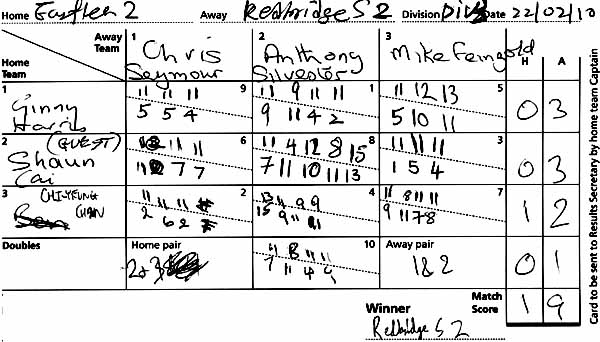 Home Eastleen 2 Away Redbridge S 2 Division Div 3 Date 22/02/10
Away Team
Home Team
1 Chris Seymour
2 Anthony Silvester
3 Mike Feingold
H A
1 Ginny Harris
9
11 11 11
5 5 4
11 9 11 11
9 11 4 2
5
11 12 13
5 10 11
0 3
2 (GUEST)
Shaun Cai
6
11 11
7 7
8
11 4 12 8 15
7 11 10 11 13
3
11 11 11
1 5 4
0 3
3 CHI-YEUNG CHAN
2
11 11 11
2 6 2
4
13 11 9 9
15 9 11 11
7
11 8 11 11
9 11 7 8
1 2
Doubles
Home pair
2 & 3
10
11 8 11 11
7 11 4 9
Away pair
1 & 2
0 1
Winner
Redbridge S 2
Match Score
1 9
Card to be sent to Results Secretary by home team Captain